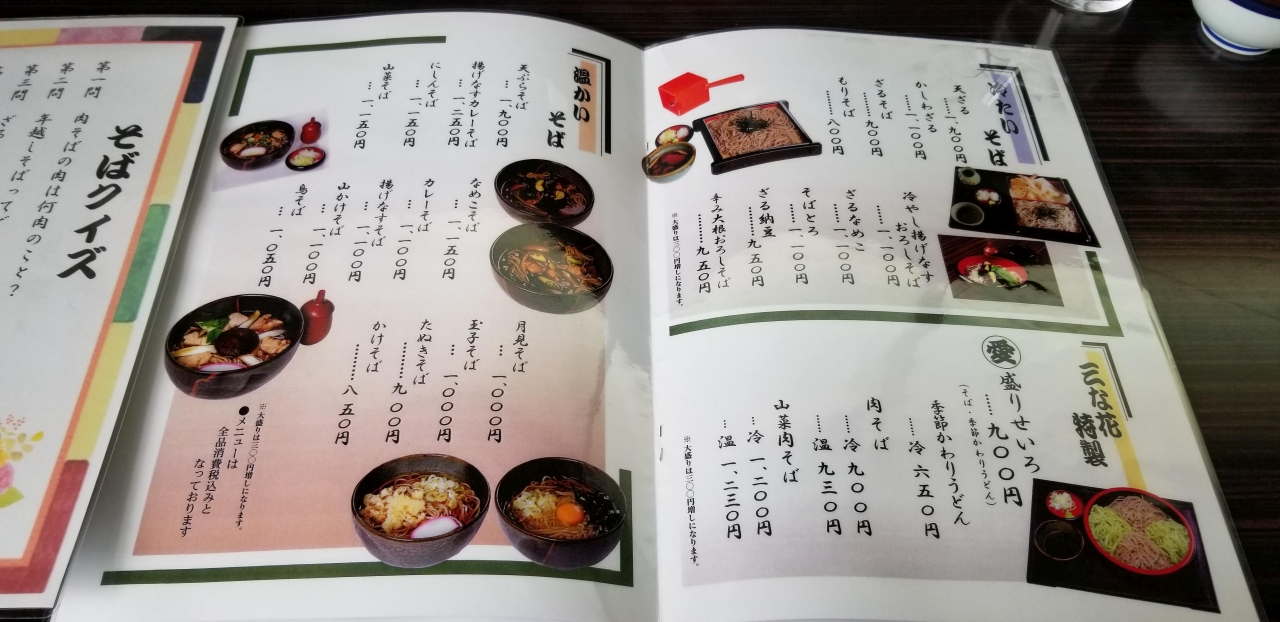 冷たい そば
天ざる
……一、九〇〇円
かしわざる
……一、一〇〇円
ざるそば
………九〇〇円
もりそば
………八〇〇円
冷やし揚げなす
おろしそば
……一、一〇〇円
ざるなめこ
……一、一〇〇円
そばとろ
……一、一〇〇円
ざる納豆
………九五〇円
辛み大根おろしそば
………九五〇円
※大盛りは三〇〇円増しになります。
三な花
特製
愛 盛りせいろ
……九〇〇円
(そば・季節かわりうどん)
季節かわりうどん
…冷 六五〇円
肉そば
……冷 九〇〇円
……温 九三〇円
山菜肉そば
…冷 一、二〇〇円
…温 一、二三〇円
※大盛りは三〇〇円増しになります。
温かい そば
天ぷらそば
…一、九〇〇円
揚げなすカレーそば
…一、二五〇円
にしんそば
…一、一五〇円
山菜そば
…一、一五〇円
なめこそば
…一、一五〇円
カレーそば
…一、一〇〇円
揚げなすそば
…一、一〇〇円
山かけそば
…一、一〇〇円
鳥そば
…一、〇五〇円
月見そば
…一、〇〇〇円
玉子そば
…一、〇〇〇円
たぬきそば
………九〇〇円
かけそば
………八五〇円
※大盛りは三〇〇円増しになります。
●メニューは
全品消費税込みと
なっております
そばクイズ
第一問 肉そばの肉は何肉のこと?
第二問 年越しそばって
第三問 ざる